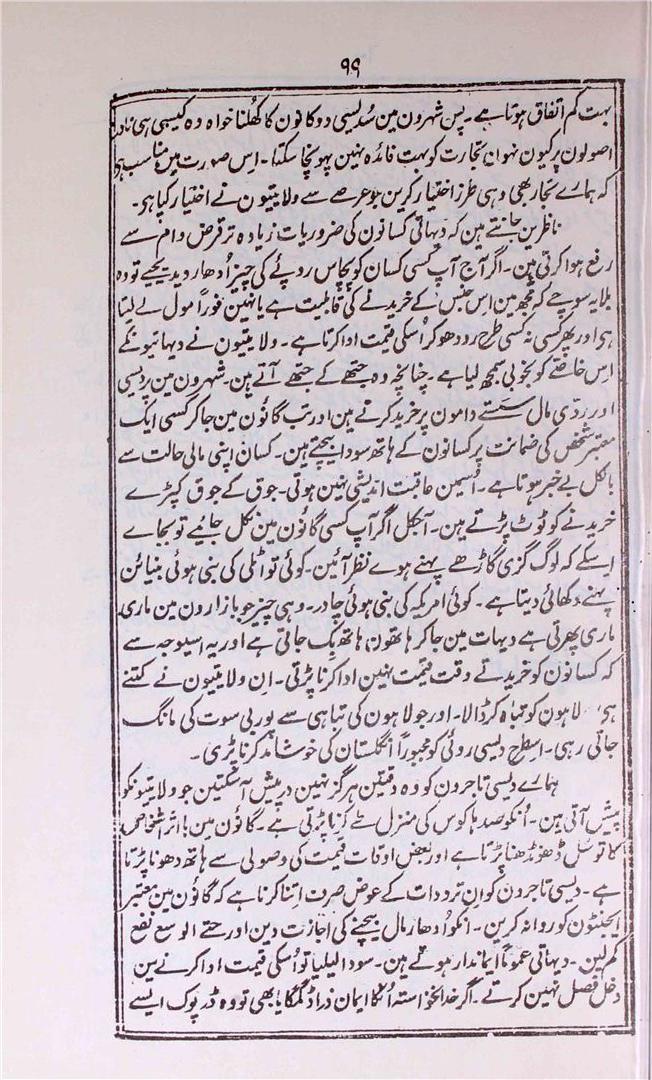 ۹۹
بہت کم اتفاق ہوتا ہے۔ پس شہرون مین سُدیسی دوکانون کا کھُلنا خواہ وہ کیسی ہی نادر
اصولون پر کیون نہو ان تجارت کو بہت فائدہ نہین پہونچا سکتا۔ اس صورت مین مناسب ہی
کہ ہمارے تجار بھی وہی طرز اختیار کرین جو عرصے سے ولایتیون نے اختیار کیا ہی۔
ناظرین جانتے ہین کہ دیہاتی کسانون کی ضروریات زیادہ تر قرض وام سے
رفع ہوا کرتی ہین۔ اگر آج آپ کسی کسان کو پچاس روپے کی چیز اُدھار دیدیجیے تو وہ
بلا یہ سوچے کہ مجھ مین اس جنس کے خریدنے کی قابلیت ہے یا نہین فوراً مول لے لیتا
ہی اور پھر کسی نہ کسی طرح رو دھو کر اُسکی قیمت ادا کرتا ہے۔ ولایتیون نے دیہاتیونکے
اِس خاصّے کو بخوبی سمجھ لیا ہے۔ چنانچہ وہ جتھے کے جتھے آتے ہین۔ شہرون مین پردیسی
اور ردّی مال سستے دامون پر خرید کرتے ہین اور تب گاؤن مین جا کر کسی ایک
معتبر شخص کی ضمانت پر کسانون کے ہاتھ سودا بیچتے ہین۔ کسان اپنی مالی حالت سے
بالکل بے خبر ہوتا ہے۔ اُسمین عاقبت اندیشی نہین ہوتی۔ جوق کے جوق کپڑے
خریدنے کو ٹوٹ پڑتے ہین۔ آجکل اگر آپ کسی گاؤن مین نکل جایئے تو بجاے
اسکے کہ لوگ گزی گاڑھے پہنے ہوے نظر آئین۔ کوئی تو اٹلی کی بنی ہوئی بنیائن
پہنے دکھائی دیتا ہے۔ کوئی امریکہ کی بنی ہوئی چادر۔ وہی چیز جو بازارون مین ماری
ماری پھرتی ہے دیہات مین جاکر ہاتھون ہاتھ بِک جاتی ہے اور یہ اسیوجہ سے
کہ کسانون کو خریدتے وقت قیمت نہین ادا کرنا پڑتی۔ اِن ولایتیون نے کتنے
ہی لاہون کو تباہ کر ڈالا۔ اور جولاہون کی تباہی سے یوربی سوت کی مانگ
جاتی رہی۔ اسطرح دیسی روئی کو مجبوراً انگلستان کی خوشامد کرنا پڑی۔
ہمارے دیسی تاجرون کو وہ دقتین ہرگز نہین درپیش آ سکتین جو ولایتیونکو
پیش آتی ہین۔ اُنکو صدہا کوس کی منزل طے کرنا پڑتی ہے۔ گاؤن مین بااثر اشخاص
کا توسّل ڈھونڈھنا پڑتا ہے اور بعض اوقات قیمت کی وصولی سے ہاتھ دھونا پڑتا
ہے۔ دیسی تاجرون کو ان ترددات کے عوض صرف اتنا کرنا ہے کہ گاؤن مین معتبر
ایجنٹون کو روانہ کرین۔ انکو اُدھار مال بیچنے کی اجازت دین اور حتے الوسع نفع
کم لین۔ دیہاتی عموماً ایماندار ہوتے ہین۔ سودا لیلیا تو اُسکی قیمت ادا کرنے مین
دخل فصل نہین کرتے۔ اگر خدانخواستہ اُنکا ایمان ذرا ڈگمگایا بھی تو وہ ڈرپوک ایسے